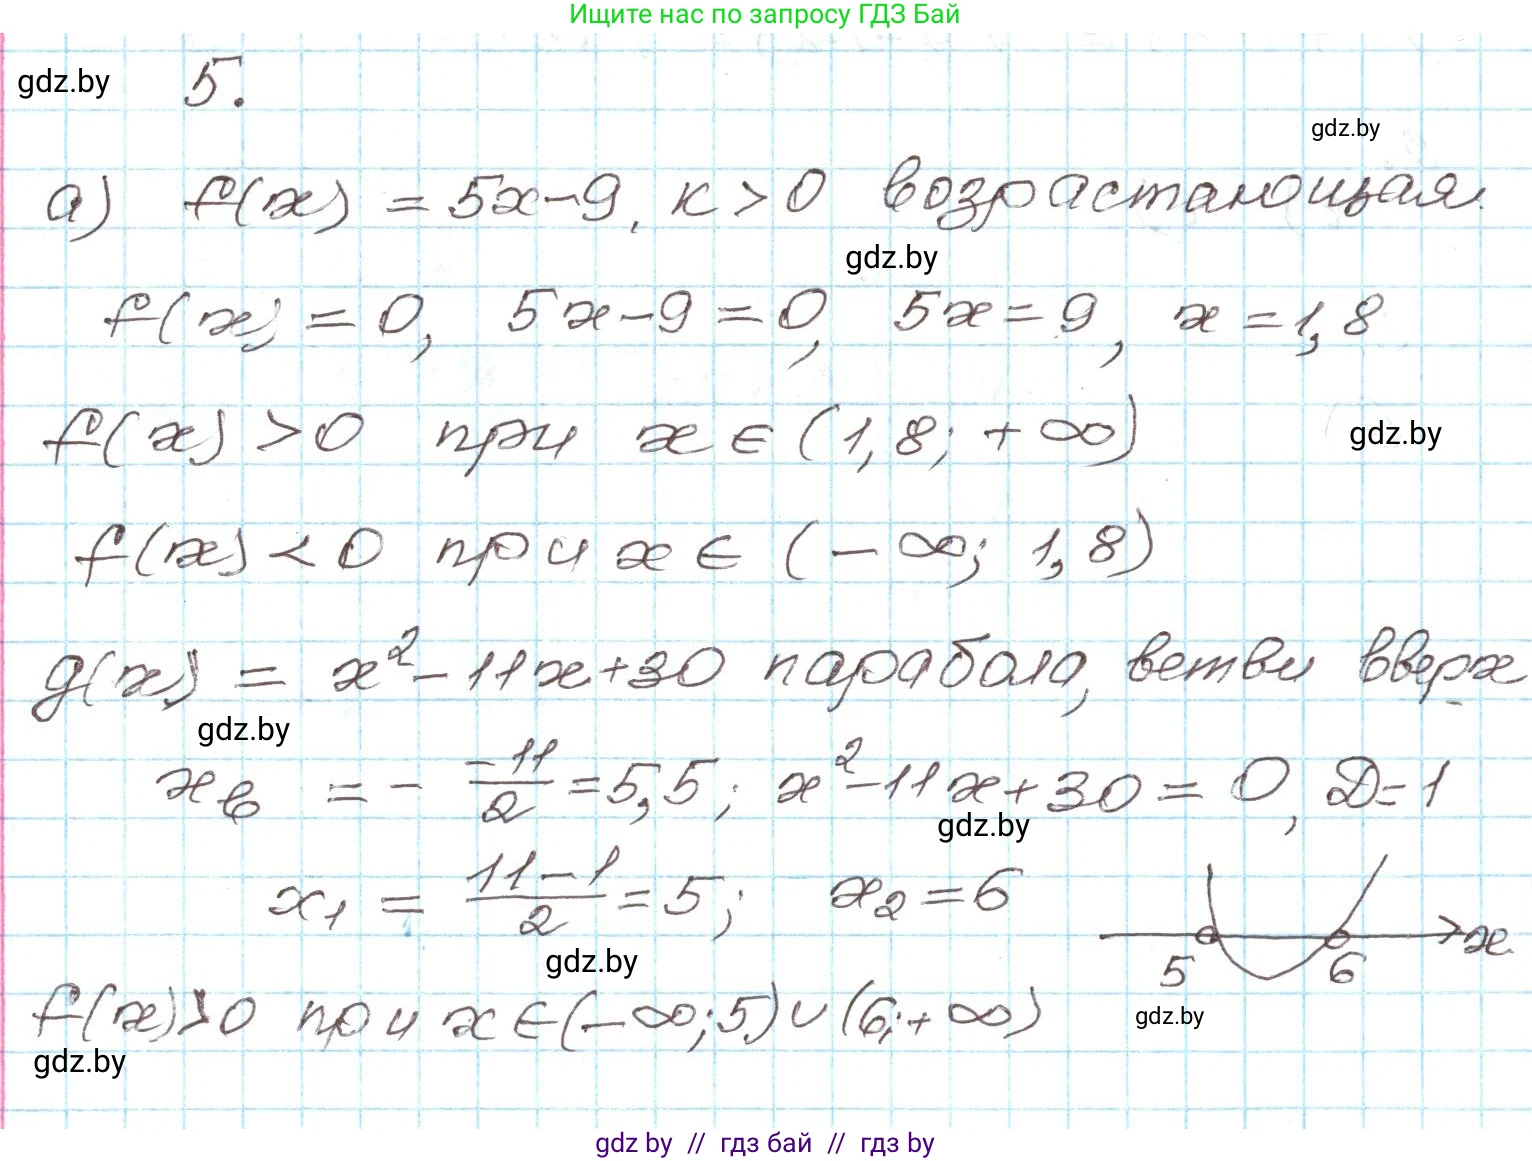 Ищите нас по запросу ГДЗ Бай
gdz.by
5.
gdz.by
а) f(x) = 5x-9, к>0 возрастающая.
gdz.by
f(x)=0, 5x-9=0, 5x=9, x=1,8
f(x)>0 при x∈(1,8; +∞)
gdz.by
f(x)<0 при x∈(-∞; 1,8)
g(x) = x²-11x+30 парабола, ветви вверх
gdz.by
xв = - -11/2 = 5,5; x²-11x+30=0, D=1
gdz.by
x₁ = 11-1/2 = 5; x₂=6
x
5 6
gdz.by
f(x)>0 при x∈(-∞;5)∪(6;+∞)
gdz.by
gdz.by
gdz by // гдз бай // гдз by